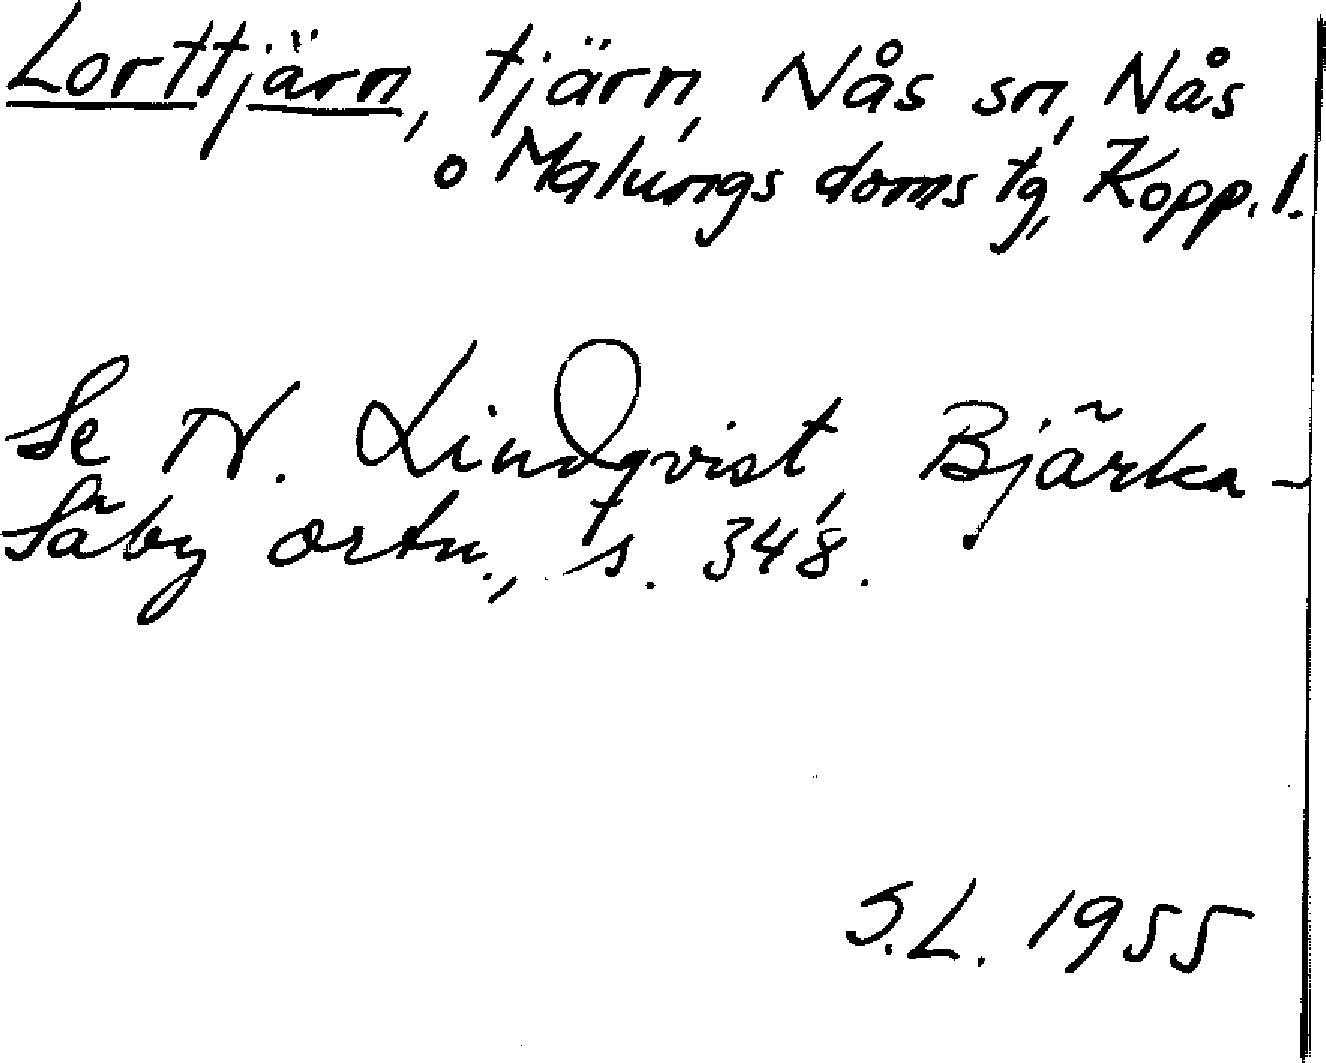 Lorttjärn, tjärn, Nås sn, Nås
o Malungs doms tg, Kopp. l.
Se N. Lindqvist, Bjärka-
Säby ortn., s. 348.
S.L. 1955